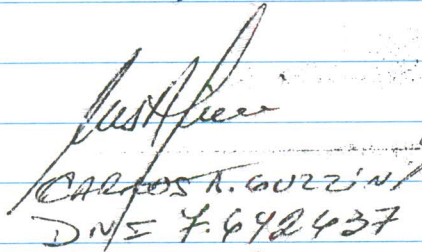 CARLOS A. GUZZINI
DNI 7.642437